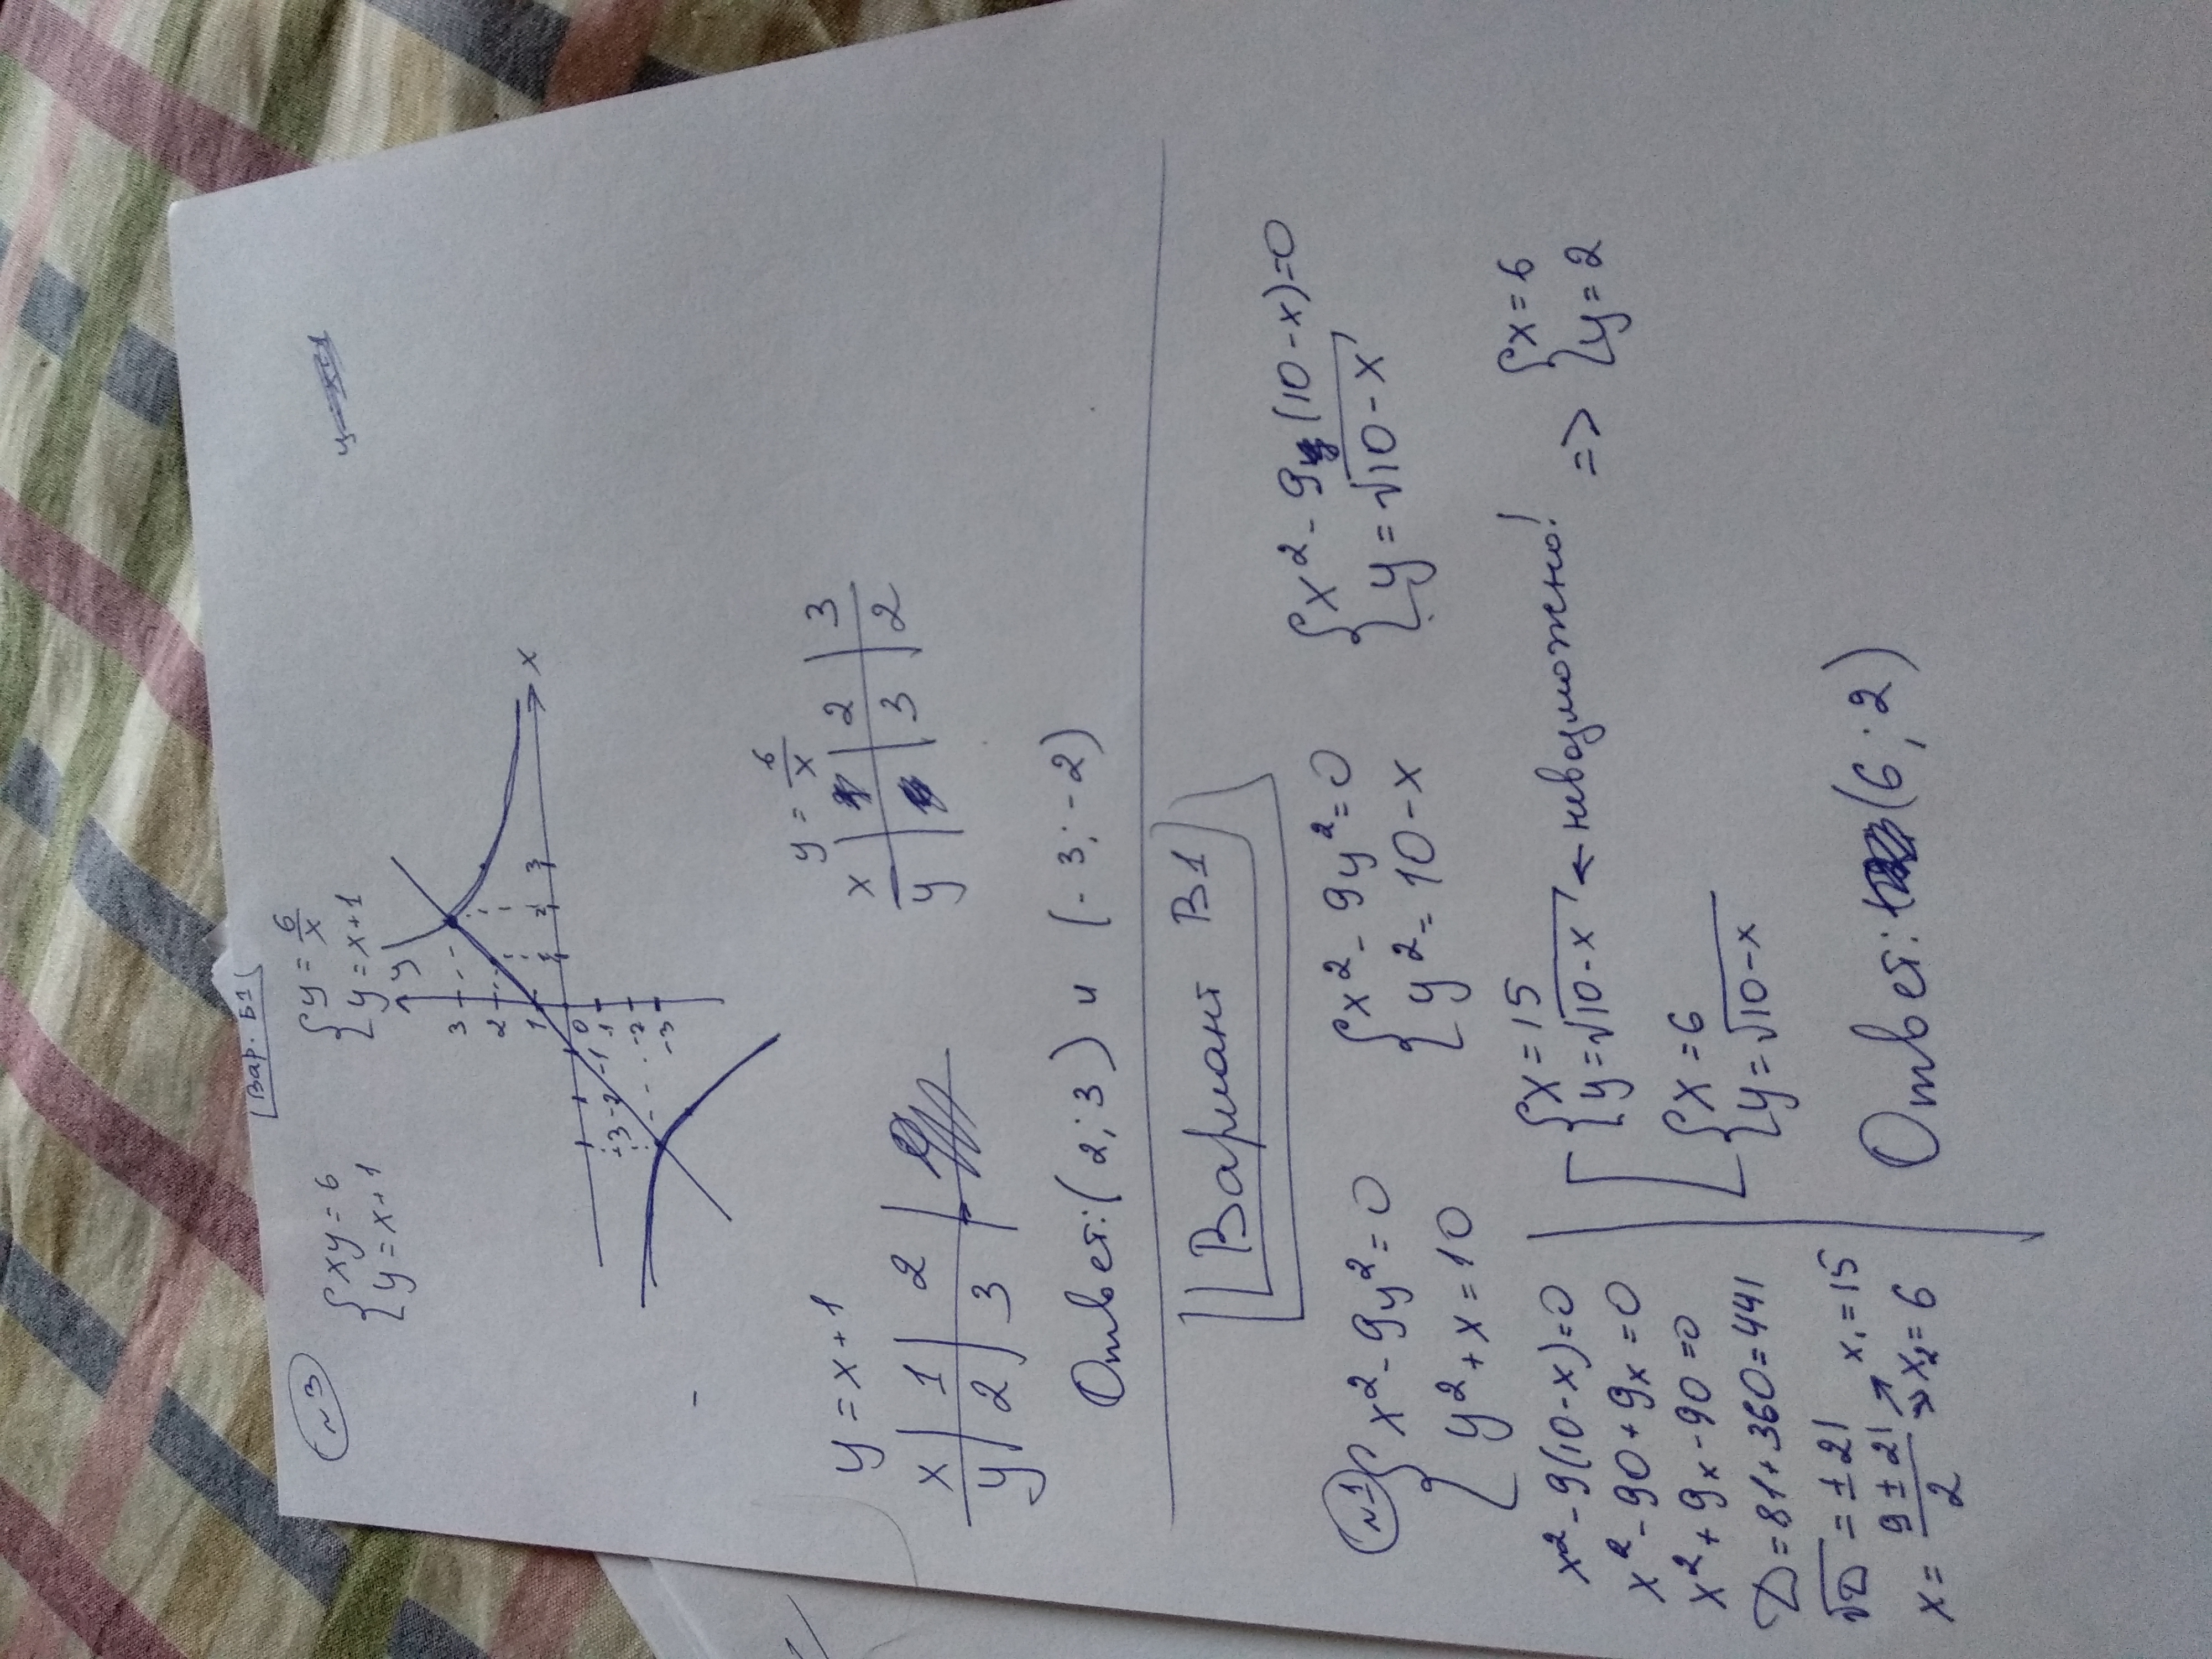 Вар. Б1
№3
{xy = 6
{y = x+1
{y = 6/x
{y = x+1
y
3
2
1
0
-1
-2
-3
-3 -2 -1
1 2 3
x
y = x+1
x | 1 | 2
y | 2 | 3
y = 6/x
x | 2 | 3
y | 3 | 2
Ответ: (2; 3) и (-3; -2)
Вариант В1
№1
{x² - 9y² = 0
{y² + x = 10
{x² - 9y² = 0
{y² = 10 - x
{x² - 9(10 - x) = 0
{y = √10 - x
x² - 9(10 - x) = 0
x² - 90 + 9x = 0
x² + 9x - 90 = 0
D = 81 + 360 = 441
√D = ± 21
x = 9 ± 21 / 2
x₁ = 15
x₂ = 6
{x = 15
{y = √10 - x ← невозможно!
{x = 6
{y = √10 - x
=> {x = 6
{y = 2
Ответ: (6; 2)